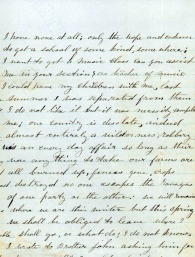 I have none at all; only the hope and endeavor
to get a school of some kind, some where;
I want to get a Music class can you assist
me in your section; as teacher of music
I could have my children with me, last
summer I was separated from them
I do not like it but it was necessity compelled
me; our country is desolate, indeed
almost entirely a wilderness, robbery
is an every day affair so long as their
was any thing to take our farms are
all burned up, fences gone, crops
destroyed no one escapes the ravages
of one party or the other; we will remain
where we are this winter but this spring
we shall be obliged to leave where I
shall go, or what do, I do not know;
I wrote to brother John asking him for